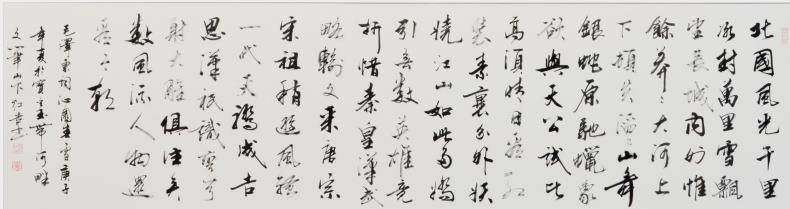 北國風光千里
冰封萬里雪飄
望長城內外惟
餘莽々大河上
下頓失滔々山舞
銀蛇原馳蠟象
欲與天公試比
高須晴日看紅
裝素裹分外妖
嬈江山如此多嬌
引無數英雄競
折惜秦皇漢武
略輸文采唐宗
宋祖稍遜風騷
一代天驕成吉
思漢祇識彎弓
射大雕俱往矣
數風流人物還
看今朝
毛澤東詞沁園春雪庚子
玉帶河畔
文筆山下